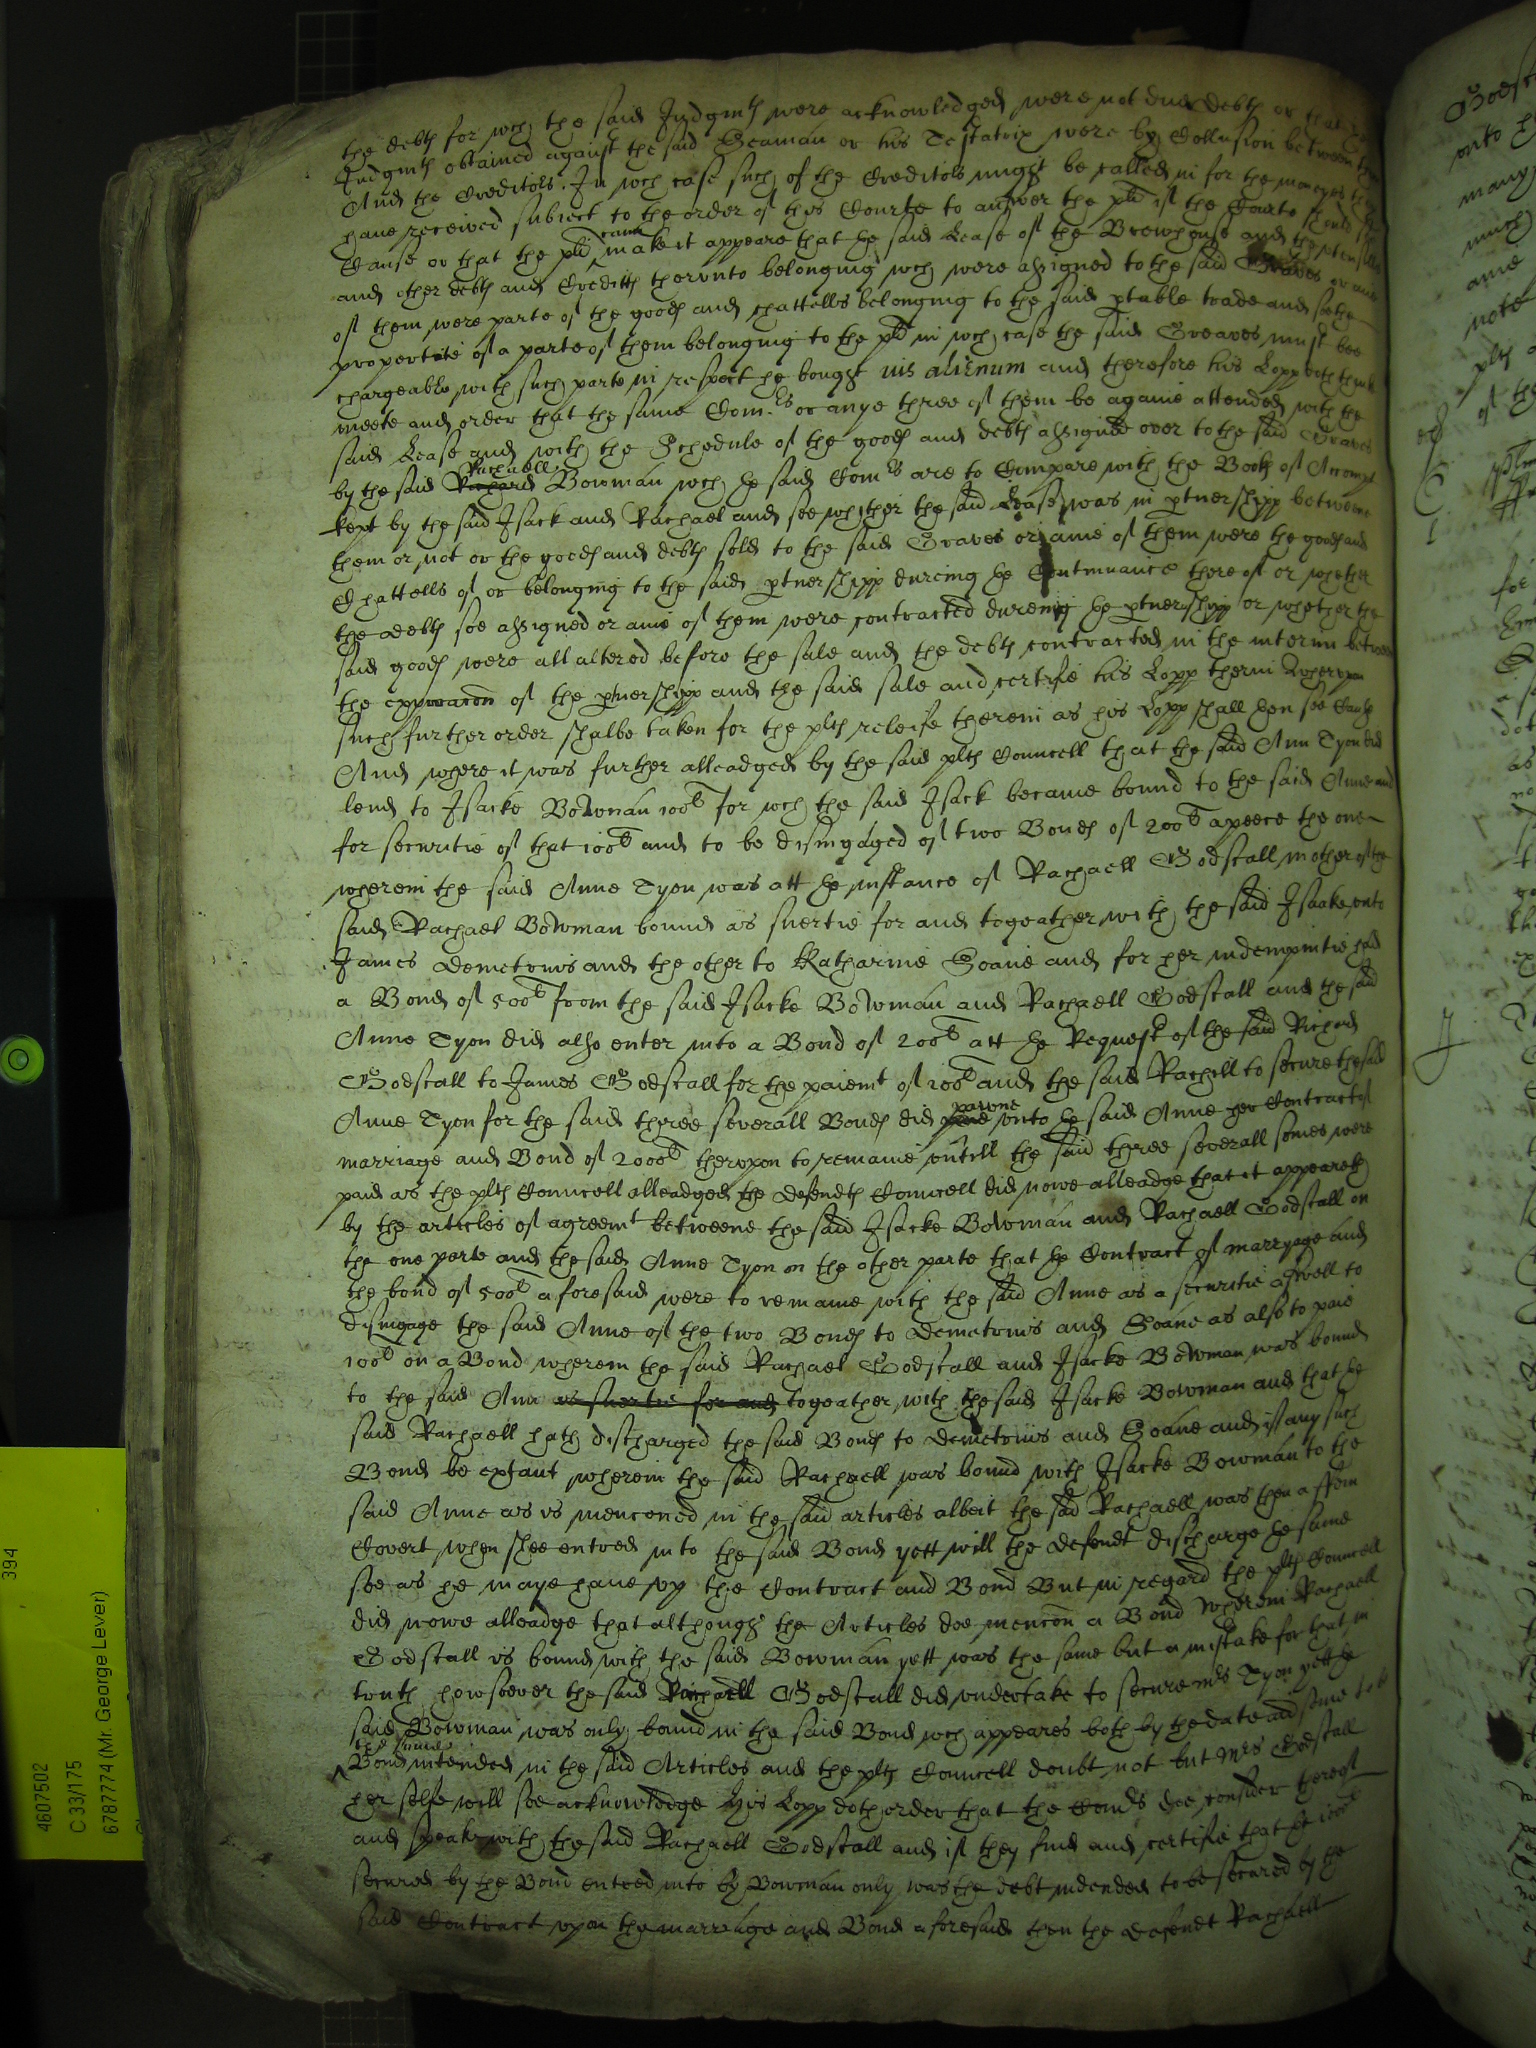 the debts for wch the said Judgmts were acknowledged were not due debts or that
Judgmts obtained against the said Seaman or his Testatrix were by Collusion between
And the Creditors. In wch case such of the Creditors might be called in for the moneyes
have received subiect to the order of this Courte to answer the plt if the Courte should see
Cause or that the plt cann make it appeare that he said Lease of the Brewhouse and the vtensills
and other debts and Creditts therunto belonging wch were assigned to the said Graves or anie
of them were parte of the goods and chattells belonging to the said ptable trade and soe the
propertie of a parte of them belonging to the plt in wch case the said Greaves must bee
chargeable with such parte in respect he bought ius alienum and therefore his Lopp doth thinke
meete and order that the same Comrs or anye three of them be againe attended with the
said Lease and with the Schedule of the goods and debts assigned over to the said Graves
by the said Rachaell Bowman wch he said Comrs are to Compare with the Books of Accompt
kept by the said Isack and Rachael and see whither the said Lease was in ptnershipp betweene
them or not or the goods and debts sold to the said Graves or anie of them were the goods and
Chattells of or belonging to the said ptnershipp dureing he Continuance there of or whether
the debts soe assigned or anie of them were contracted dureing he ptnershipp or whether the
said goods were all altered before the sale and the debts contracted in the interim betweene
the expiracon of the ptnershipp and the said sale and certifie his Lopp therin Wherupon
such further order shalbe taken for the plts releife therein as his Lopp shall then see Cause
And where it was further alleadged by the said plts Councell that the said Ann Tyon did
lend to Isacke Bowman 100l for wch the said Isack became bound to the said Anne and
for securitie of that 100l and to be disingaged of two Bonds of 200l apeece the one
wherein the said Anne Tyon was att he instance of Rachaell Godscall mother of the
said Rachael Bowman bound as suertie for and togeather with the said Isaake vnto
James Demetrius and the other to Katharine Soane and for her indempnitie had
a Bond of 500l from the said Isacke Bowman and Rachaell Godscall and the said
Anne Tyon did also enter into a Bond of 200l att he Request of the said Richard
Godscall to James Godscall for the paiemt of 100l and the said Rachell to secure the said
Anne Tyon for the said three severall Bonds did pawne vnto he said Anne her Contract of
marriage and Bond of 2000l therupon to remaine vntill the said three severall somes were
paid as the plts Councell alleadged the defendts Councell did nowe alleadge that it appeareth
by the articles of agreemt betweene the said Isacke Bowman and Rachaell Godscall on
the one parte and the said Anne Tyon on the other parte that he Contract of marryage and
the bond of 500l aforesaid were to remaine with the said Anne as a securitie aswell to
disingage the said Anne of the two Bonds to Demetrius and Soane as also to paie
100l on a Bond wherein the said Rachael Godscall and Isacke Bowman was bound
to the said Ann as suertie for and togeather with the said Isacke Bowman and that he
said Rachaell hath discharged the said Bonds to demetrius and Soane and if any such
Bond be extant wherein the said Rachaell was bound with Isacke Bowman to the
said Anne as is menconed in the said articles albeit the said Rachaell was then a ffem
Covert when shee entred into the said Bond yett will the defendt discharge he same
soe as he maye have vp the Contract and Bond But in regard the plts Councell
did nowe alleadge that although the Articles doe mencon a Bond wherein Rachaell
Godscall is bound with the said Bowman yett was the same but a mistake for that in
truth howsoever the said Rachaell Godscall did vndertake to secure mrs Tyon yett he
said Bowman was only bound in the said Bond wch appeares both by the date and some to be
the same Bond intended in the said Articles and the plts Councell doubt not but Mrs Godscall
her selfe will soe acknowledge his Lopp doth order that the Comrs doe consider thereof
and speake with the said Rachaell Godscall and if they find and certifie that he 100l
secured by the Bond entred into by Bowman only was the debt indended to be secured by the
said Contract vpon the marreage and Bond aforesaid then the defendt Rachaell
394
4607502
C 33/175
6787774 (Mr. George Lever)